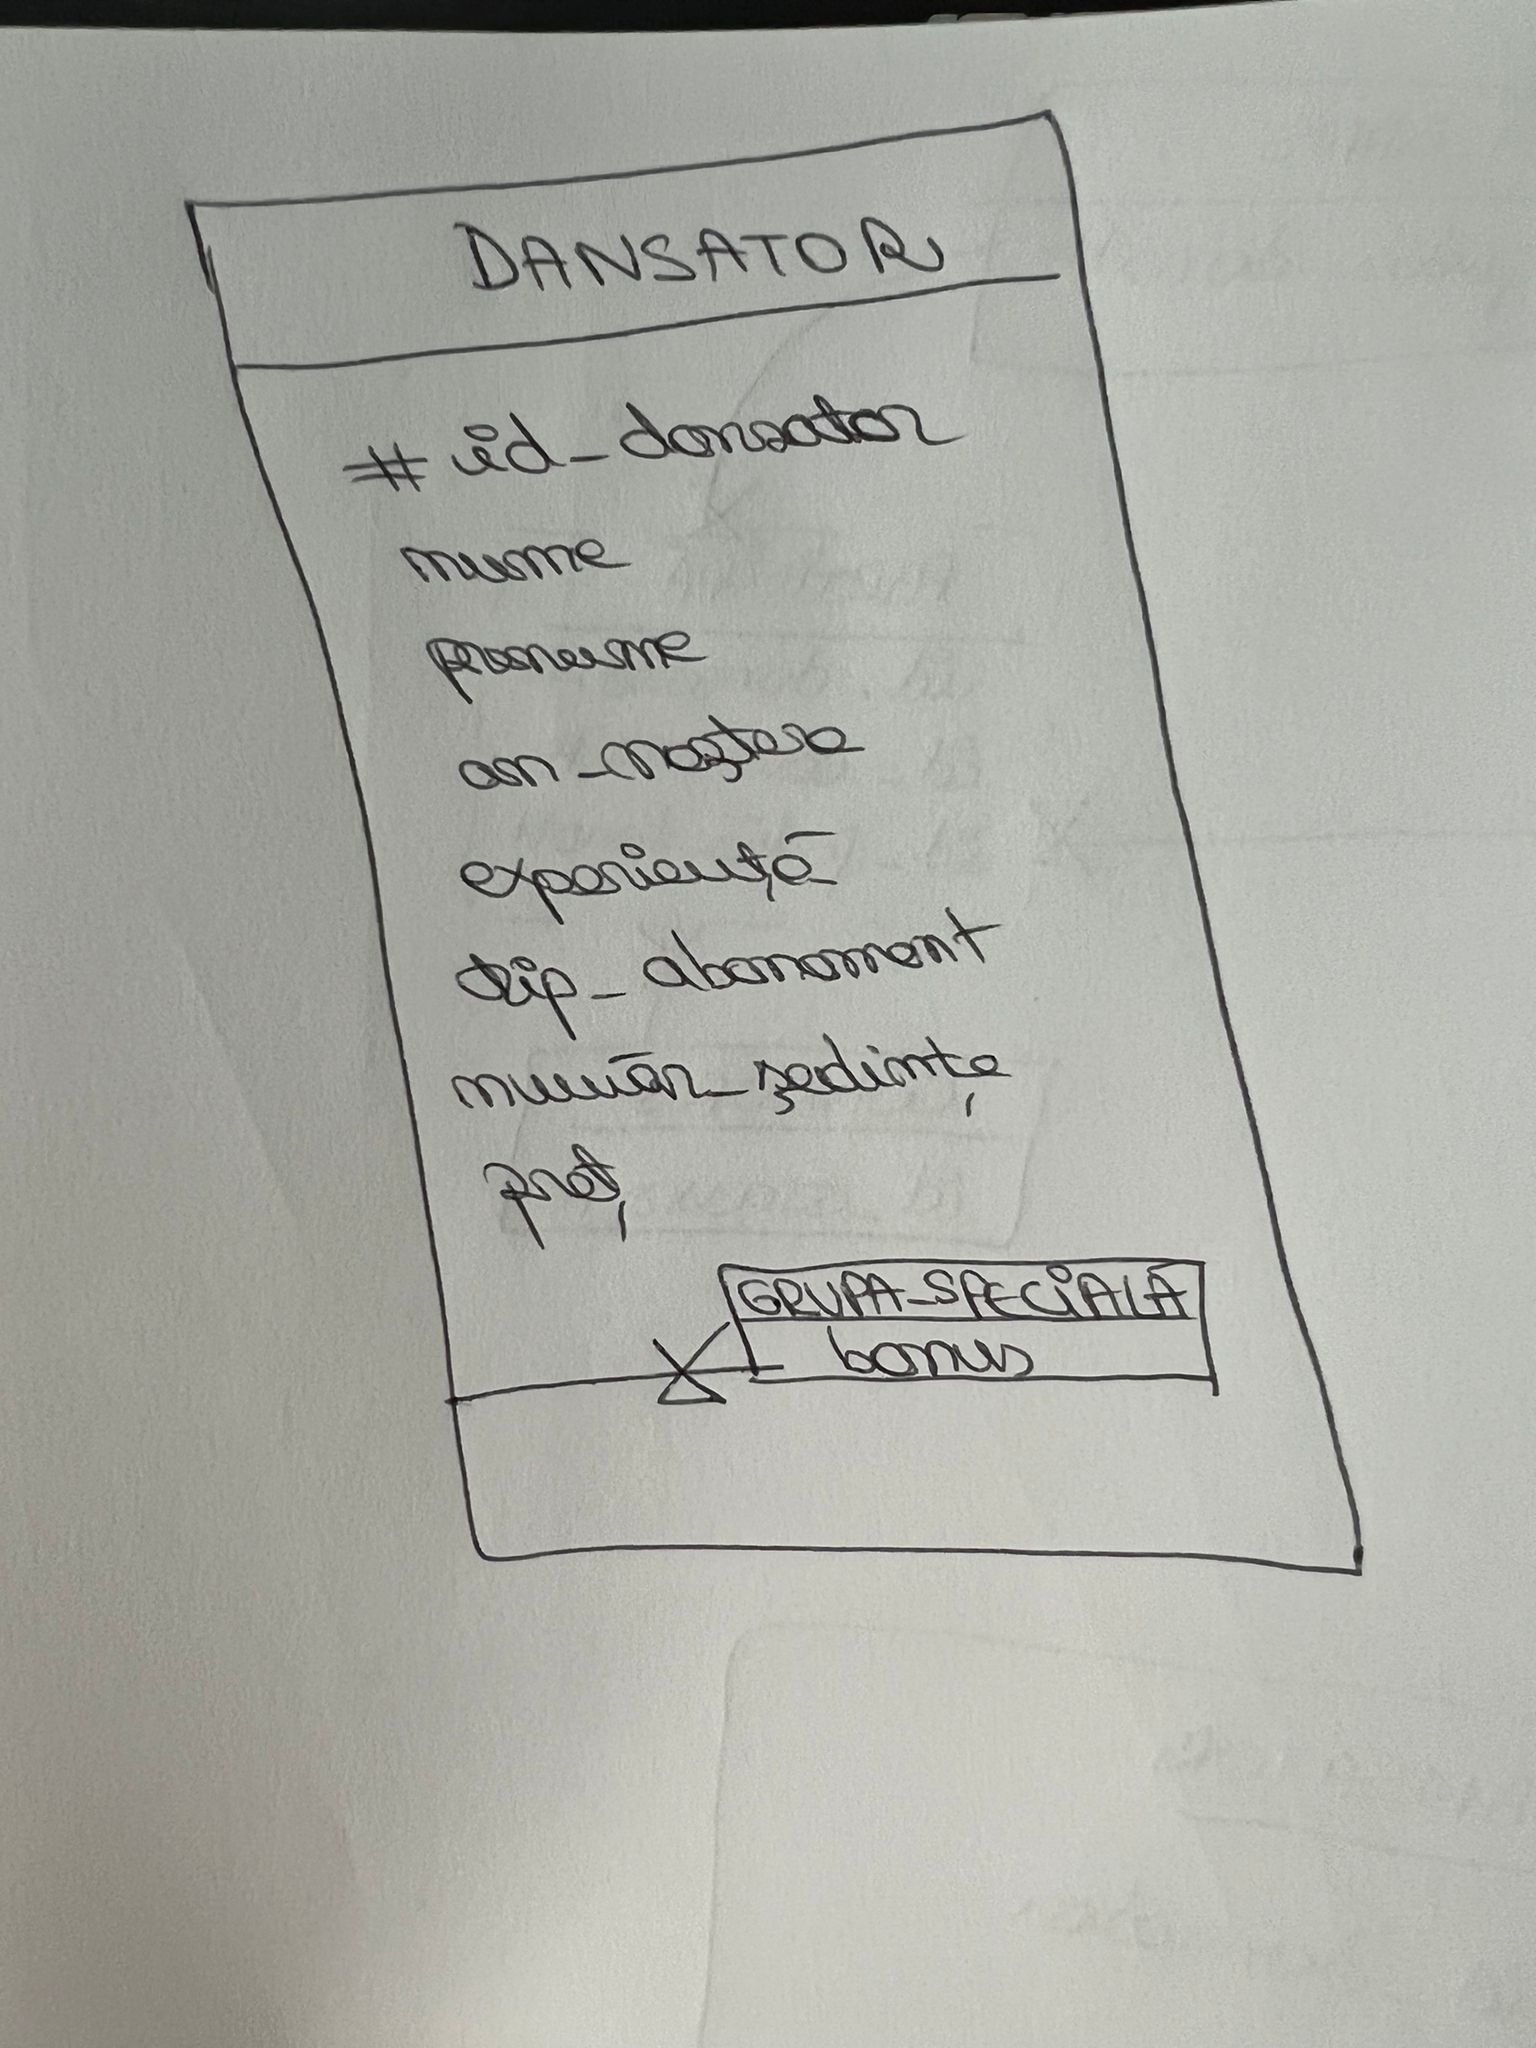 DANSATOR
#id_dansator
nume
prenume
an_naștere
experiență
tip_abonament
număr_ședințe
preț
GRUPA_SPECIALĂ
bonus